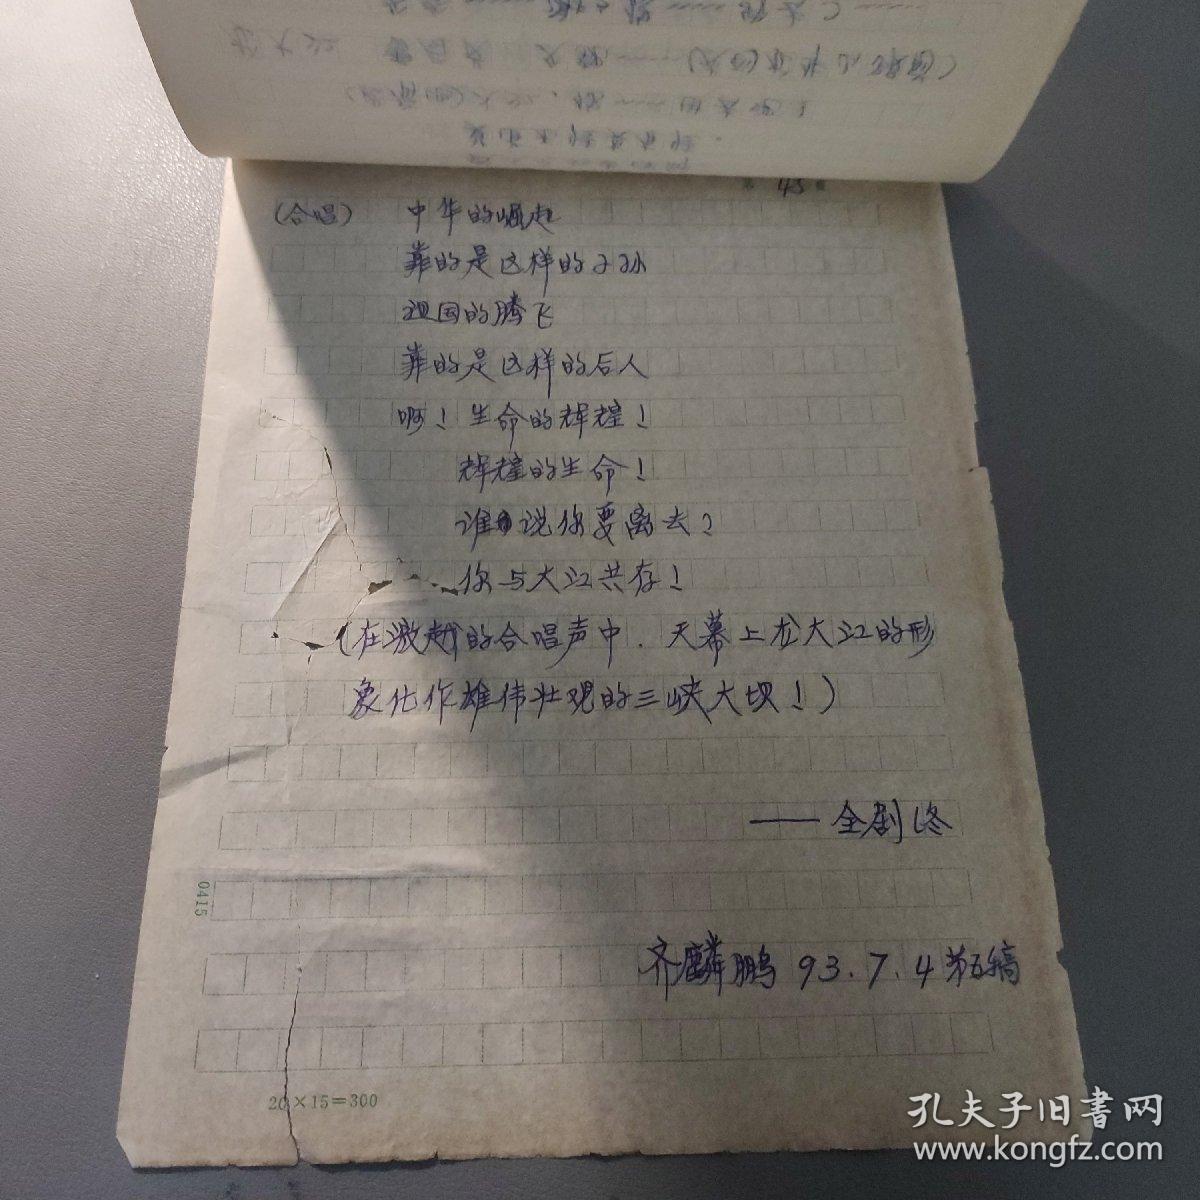 45
(合唱) 中华的崛起
靠的是这样的子孙
祖国的腾飞
靠的是这样的后人
啊！生命的辉煌！
辉煌的生命！
谁说你要离去？
你与大江共存！
(在激越的合唱声中．天幕上龙大江的形
象化作雄伟壮观的三峡大坝！)
——全剧终
齐麟鹏 93.7.4 第五稿
0415
20×15=300
孔夫子旧書网
www.kongfz.com